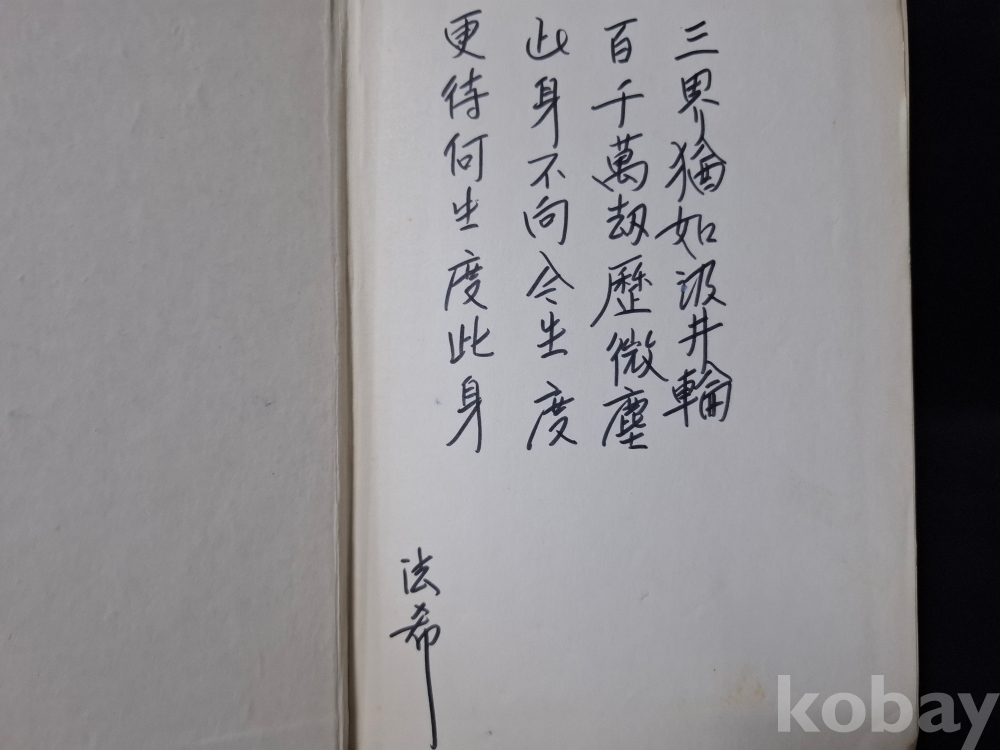 三界猶如汲井輪
百千萬劫歷微塵
此身不向今生度
更待何生度此身
法希
kobay